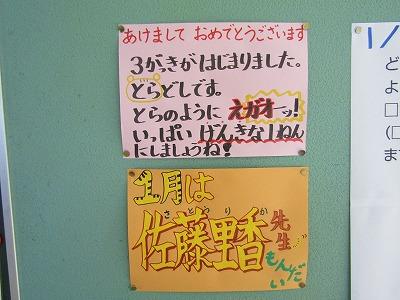 あけまして おめでとうございます
3がっきがはじまりました。
とらどしです。
とらのように えガオーッ!
いっぱい げんきな1ねん
にしましょうね!
1月は
さとうりか
佐藤里香先生
もんだい
1/
ど
よ
□
(□
ま